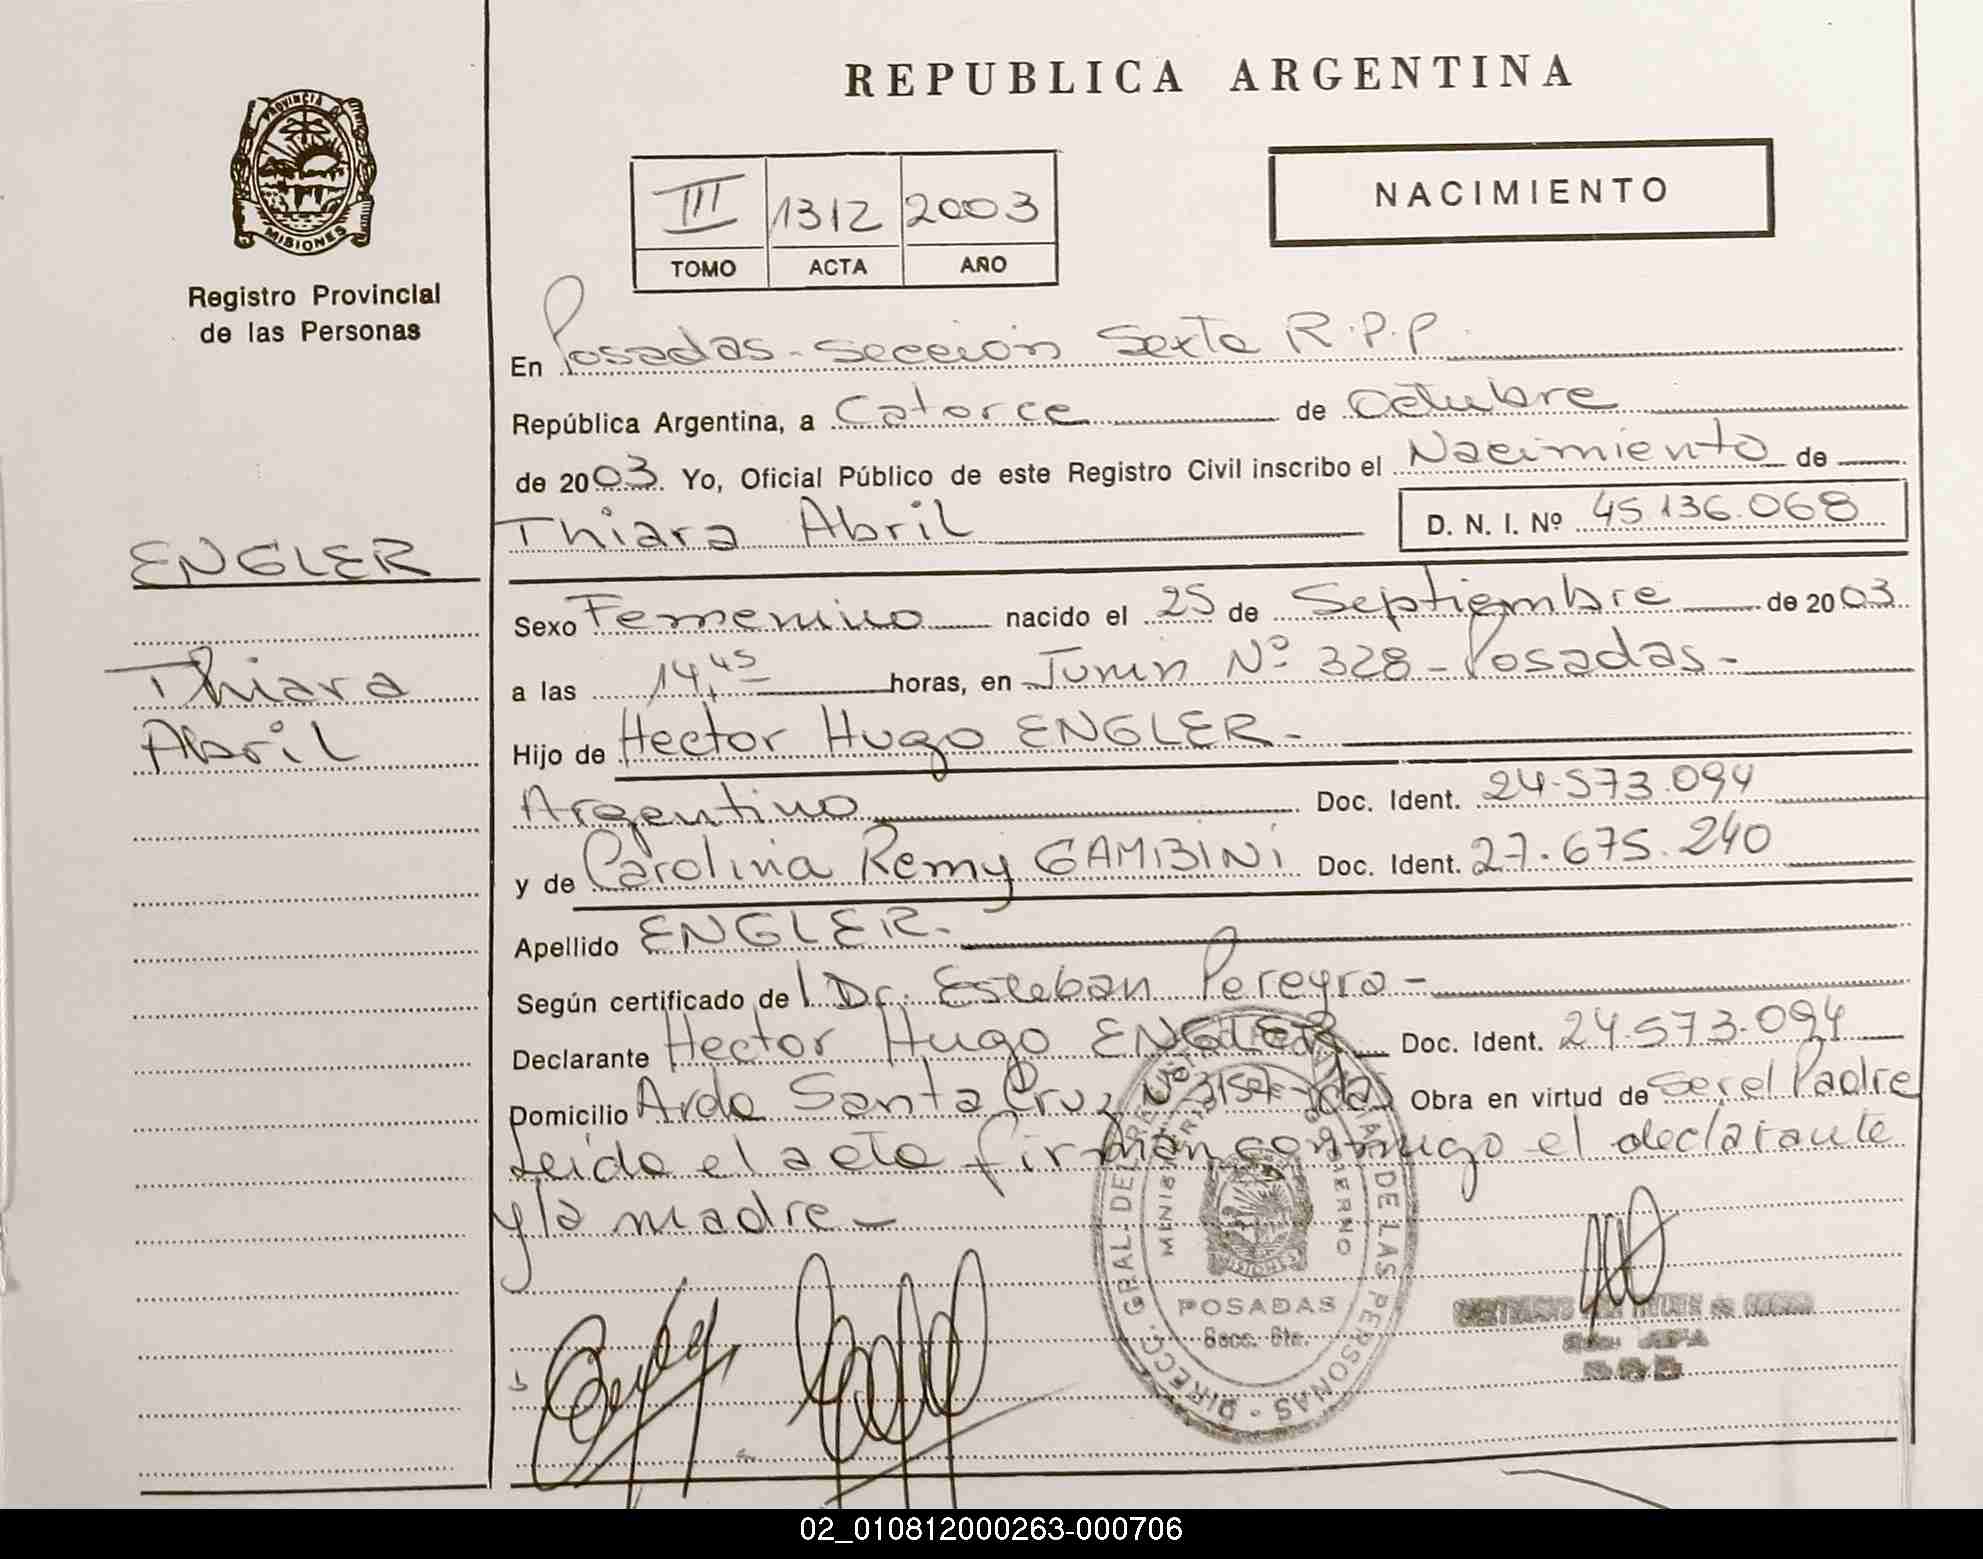 REPUBLICA ARGENTINA
PROVINCIA DE
MISIONES
Registro Provincial
de las Personas
III 1312 2003
TOMO ACTA AÑO
NACIMIENTO
En Posadas-Sección Sexta R.P.P.
República Argentina, a Catorce de Octubre
de 2003. Yo, Oficial Público de este Registro Civil inscribo el Nacimiento de
Thiara Abril D. N. I. Nº 45.136.068
ENGLER
Thiara
Abril
Sexo Femenino nacido el 25 de Septiembre de 2003
a las 14,45 horas, en Junin Nº 328-Posadas-
Hijo de Hector Hugo ENGLER-
Argentino Doc. Ident. 24.573.094
y de Carolina Remy GAMBINI Doc. Ident. 27.675.240
Apellido ENGLER-
Según certificado de Dr. Esteban Pereyra-
Declarante Hector Hugo ENGLER Doc. Ident. 24.573.094
Domicilio Avda Santa Cruz Nº Obra en virtud de ser el Padre
Leida el acta firman conmigo el declarante
y la madre-
DIRECC. GRAL. DEL DE LAS PERSONAS
GOBIERNO
MISIONES
POSADAS
Secc. 6ta.
02_010812000263-000706